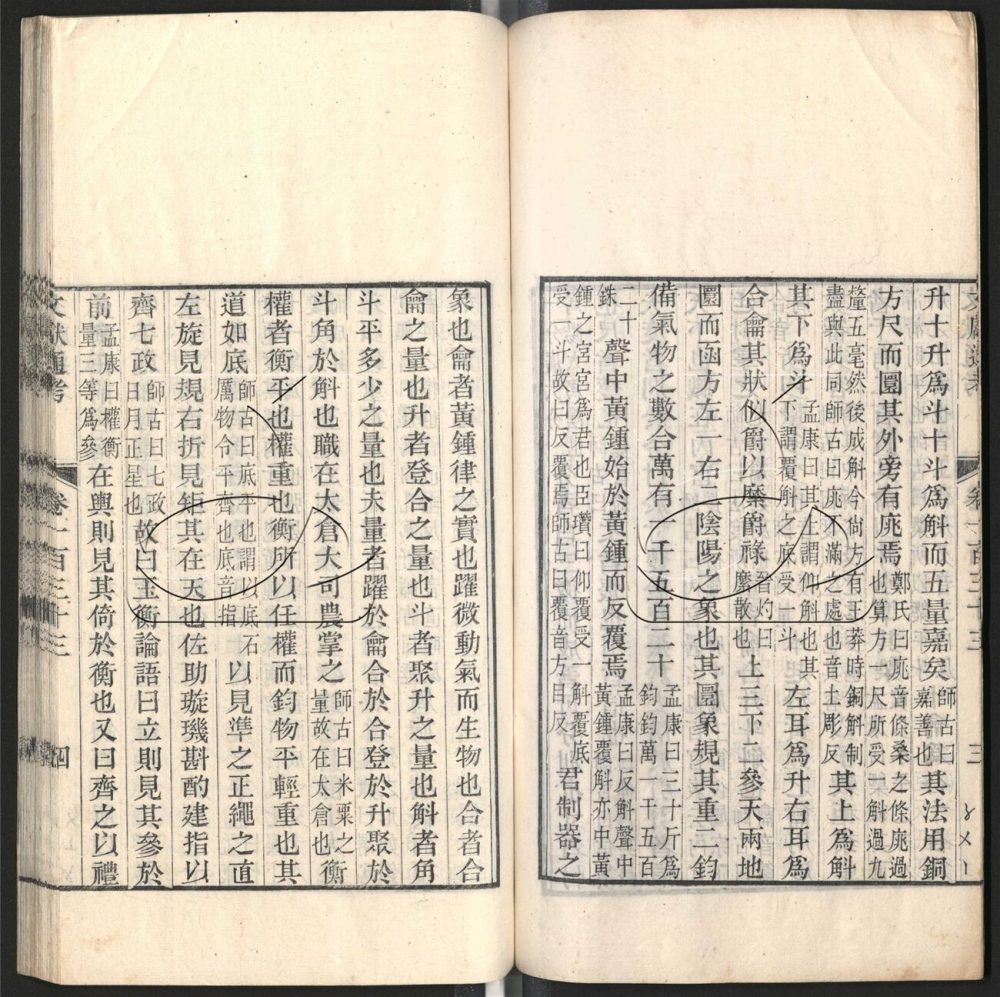 升十升爲斗十斗爲斛而五量嘉矣師古曰嘉善也其法用銅
方尺而圜其外旁有庣焉鄭氏曰庣音條桑之條庣過也算方一尺所受一斛過九
釐五毫然後成斛今尙方有王莽時銅斛制盡與此同師古曰庣不滿之處也音土彫反其上爲斛
其下爲斗孟康曰其上謂仰斛也其下謂覆斛之底受一斗左耳爲升右耳爲
合龠其狀似爵以縻爵祿晉灼曰縻散也上三下二參天兩地
圜而函方左一右二陰陽之象也其圜象規其重二鈞
備氣物之數合萬有一千五百二十孟康曰三十斤爲鈞鈞萬一千五百
二十銖聲中黃鍾始於黃鍾而反覆焉孟康曰反斛聲中黃鍾覆斛亦中黃
鍾之宮宮爲君也臣瓚曰仰覆受一斛覆底受一斗故曰反覆焉師古曰覆音方目反君制器之
文獻通考 卷一百三十三 三
象也龠者黃鍾律之實也躍微動氣而生物也合者合
龠之量也升者登合之量也斗者聚升之量也斛者角
斗平多少之量也夫量者躍於龠合於合登於升聚於
斗角於斛也職在太倉大司農掌之師古曰米粟之量故在太倉也衡
權者衡平也權重也衡所以任權而鈞物平輕重也其
道如底師古曰底平也謂以底石厲物令平齊也底音指以見準之正繩之直
左旋見規右折見矩其在天也佐助璇璣斟酌建指以
齊七政師古曰七政日月五星也故曰玉衡論語曰立則見其參於
前孟康曰權衡量三等爲參在輿則見其倚於衡也又曰齊之以禮
文獻通考 卷一百三十三 四